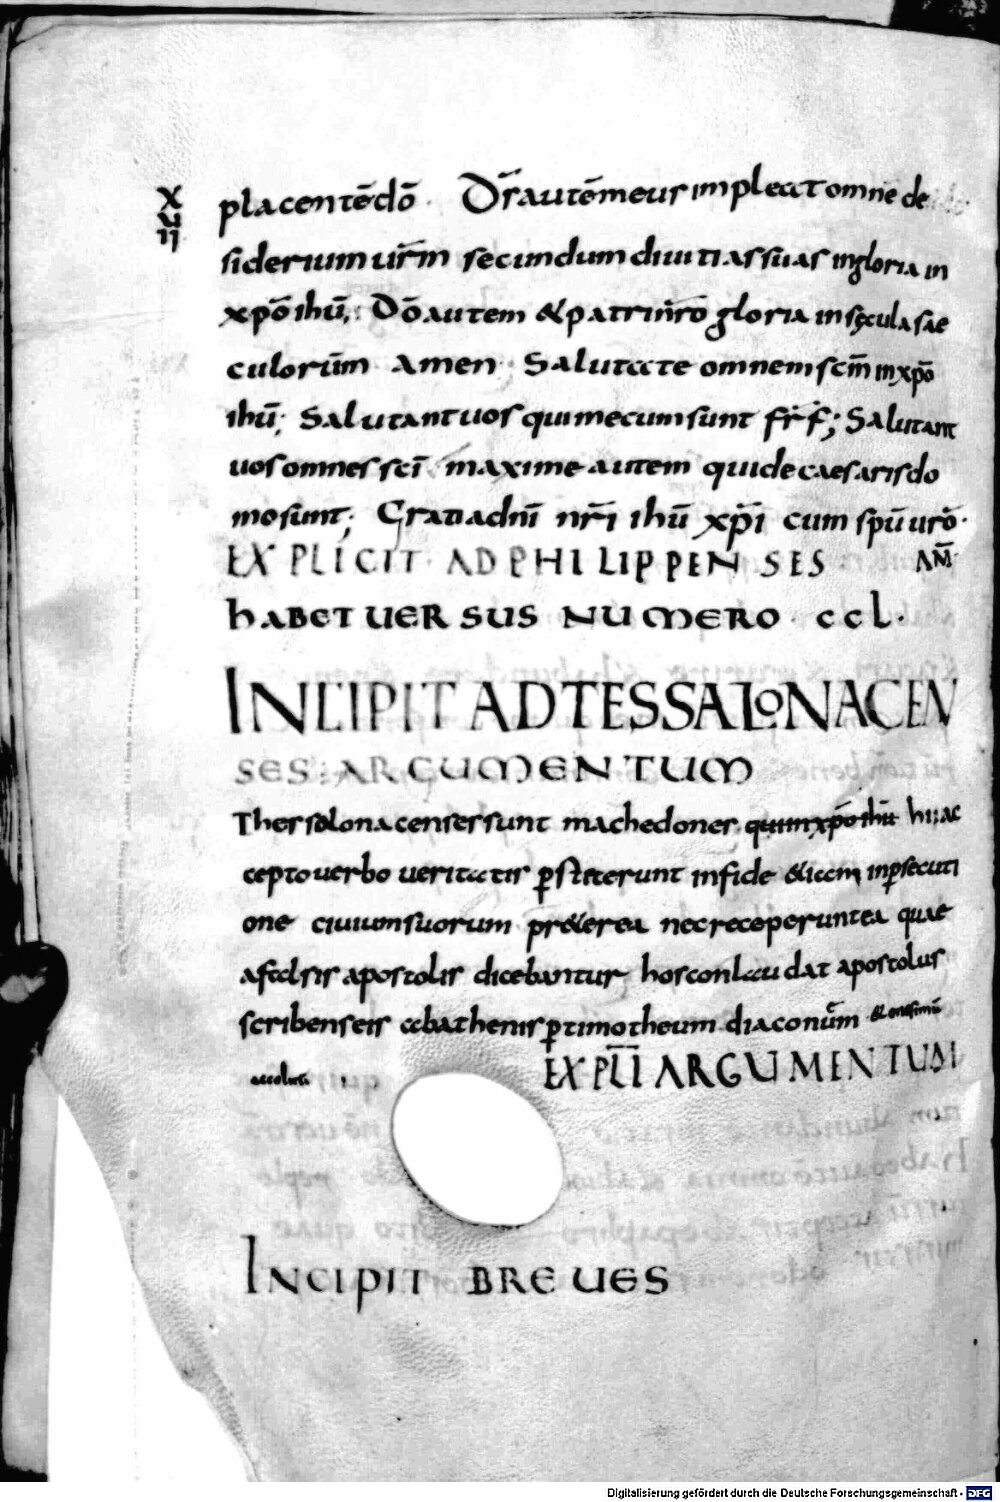 XVII
placentē dō. Dr̄ autē meus impleat omne de
siderium ur̄m secundum diuitias suas in gloria in
xpō ihū; Dō autem & patri nr̄o gloria in sęcula sae
culorūm Amen. Salutate omnem sc̄m in xpō
ihū; Salutant uos qui mecum sunt fr̄s; Salutant
uos omnes sc̄i maxime autem qui de caesaris do
mo sunt; Gratia dn̄i nr̄i ihū xp̄i cum sp̄u uro.
EXPLICIT AD PHILIPPENSES AM̄
habet uersus numero ccl.
INCIPIT AD TESSALONACEN
SES: ARGUMENTUM
Thessolonacenses sunt machedones qui in xpō ihū hi; ac
cepto uerbo ueritatis pstiterunt in fide & iam in psecuti
one ciuium suorum pr&erea nec receperunt ea quae
a falsis apostolis dicebantur hos conlaudat apostolus
scribens eis ab athenis p timotheum diaconūm & onesimū
acolitū EXPLI ARGUMENTUM
INCIPIT BREUES
Digitalisierung gefördert durch die Deutsche Forschungsgemeinschaft - DFG